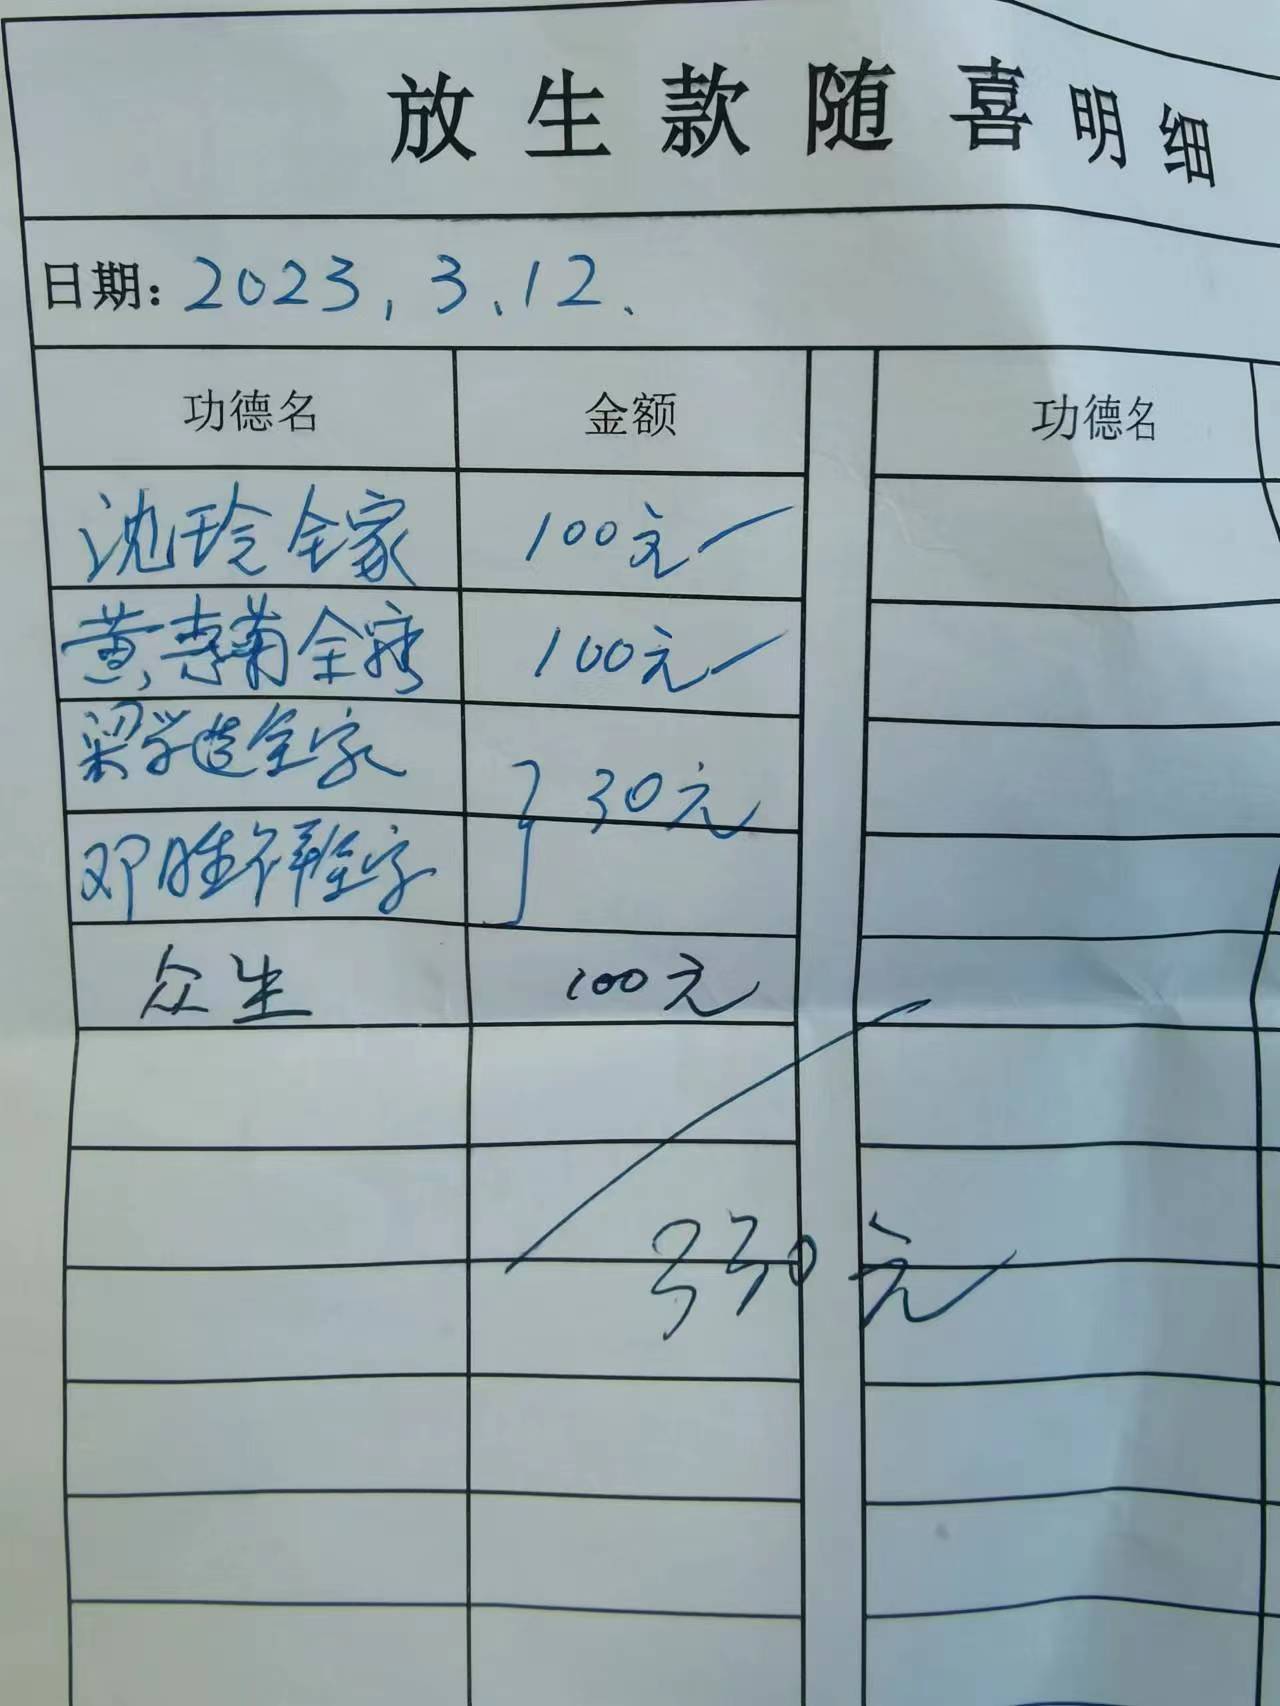 放生款随喜明细
日期: 2023.3.12.
功德名 金额 功德名
沈玲全家 100元
黄惠菊全家 100元
梁学造全家
30元
邓胜祥全家
众生 100元
330元